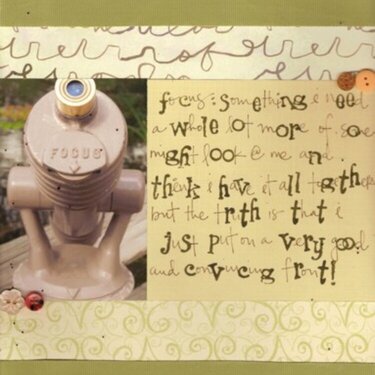 FOCUS
focus: something i need
a whole lot more of. some
might look @ me and
think i have it all together
but the truth is that i
just put on a very good
and convincing front!